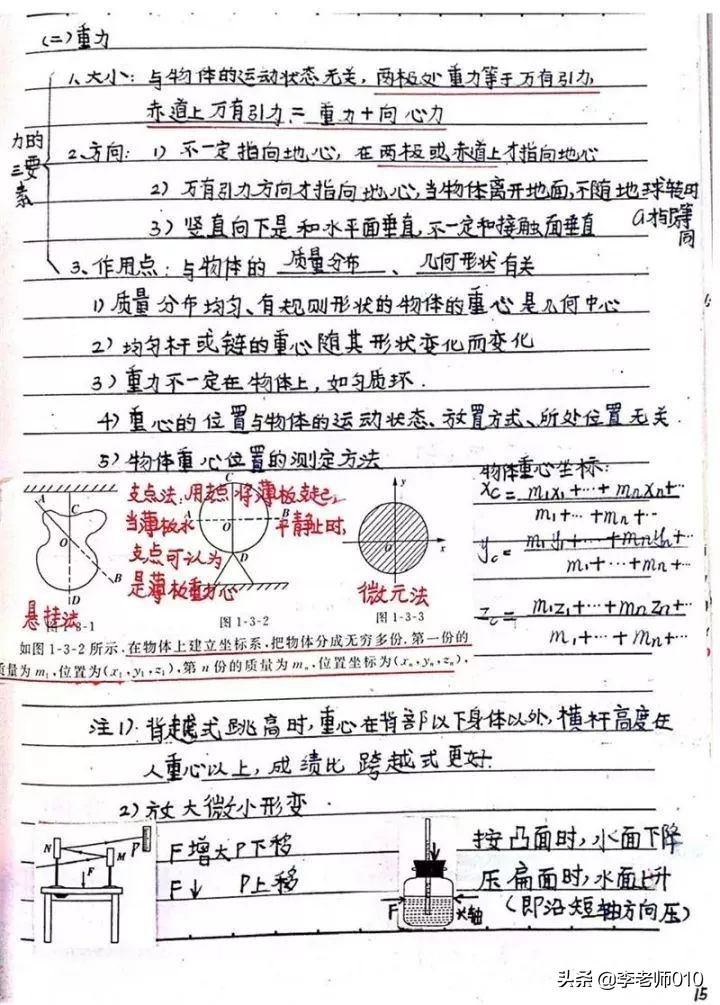 (二)重力
1、大小:与物体的运动状态无关,两极处重力等于万有引力,
赤道上万有引力=重力+向心力
力的三要素
2、方向: 1) 不一定指向地心,在两极或赤道上才指向地心
2) 万有引力方向才指向地心,当物体离开地面,不随地球转时
相等同
3) 竖直向下是和水平面垂直,不一定和接触面垂直
3、作用点:与物体的 质量分布、几何形状有关
1) 质量分布均匀、有规则形状的物体的重心是几何中心
2) 均匀杆或链的重心随其形状变化而变化
3) 重力不一定在物体上,如匀质环.
4) 重心的位置与物体的运动状态、放置方式、所处位置无关.
5) 物体重心位置的测定方法
A C O B D
悬挂法
3-1
支点法:用支点将薄板支起,
当薄板水平静止时,
支点可认为
是薄板重力心
C A O B D
图 1-3-2
y O x
微元法
图 1-3-3
物体重心坐标:
xc = m1x1+…+mnxn+… / m1+…+mn+…
yc = m1y1+…+mnyn+… / m1+…+mn+…
zc = m1z1+…+mnzn+… / m1+…+mn+…
如图 1-3-2 所示,在物体上建立坐标系,把物体分成无穷多份,第一份的
质量为 m1,位置为(x1,y1,z1),第 n 份的质量为 mn,位置坐标为(xn,yn,zn),
注 1) 背越式跳高时,重心在背部以下身体以外,横杆高度在
人重心以上,成绩比跨越式更好.
2) 放大微小形变
N M P F
F增大P下移
F↓ P上移
F 长轴
按凸面时,水面下降
压扁面时,水面上升
(即沿短轴方向压)
头条 @李老师010
15